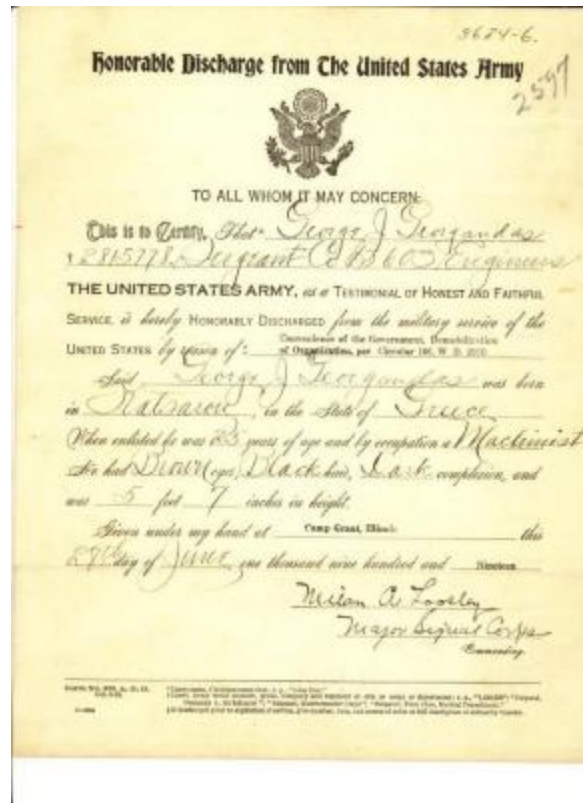 3624-6.
2597
Honorable Discharge from The United States Army
TO ALL WHOM IT MAY CONCERN:
This is to Certify, That George J Georgandas
2815778, Sergeant Co Engineers
THE UNITED STATES ARMY, as a TESTIMONIAL OF HONEST AND FAITHFUL
SERVICE, is hereby HONORABLY DISCHARGED from the military service of the
UNITED STATES by reason of: Convenience of the Government, Demobilization
of Organization, per Circular 106, W. D.
Said George J Georgandas was born
in , in the State of Greece
When enlisted he was 25 years of age and by occupation a Machinist
He had Brown eyes, Black hair, Dark complexion, and
was 5 feet 7 inches in height.
Given under my hand at Camp Grant, Illinois this
27th day of June, one thousand nine hundred and Nineteen
Milan A Loosley
Major Signal Corps
Commanding.